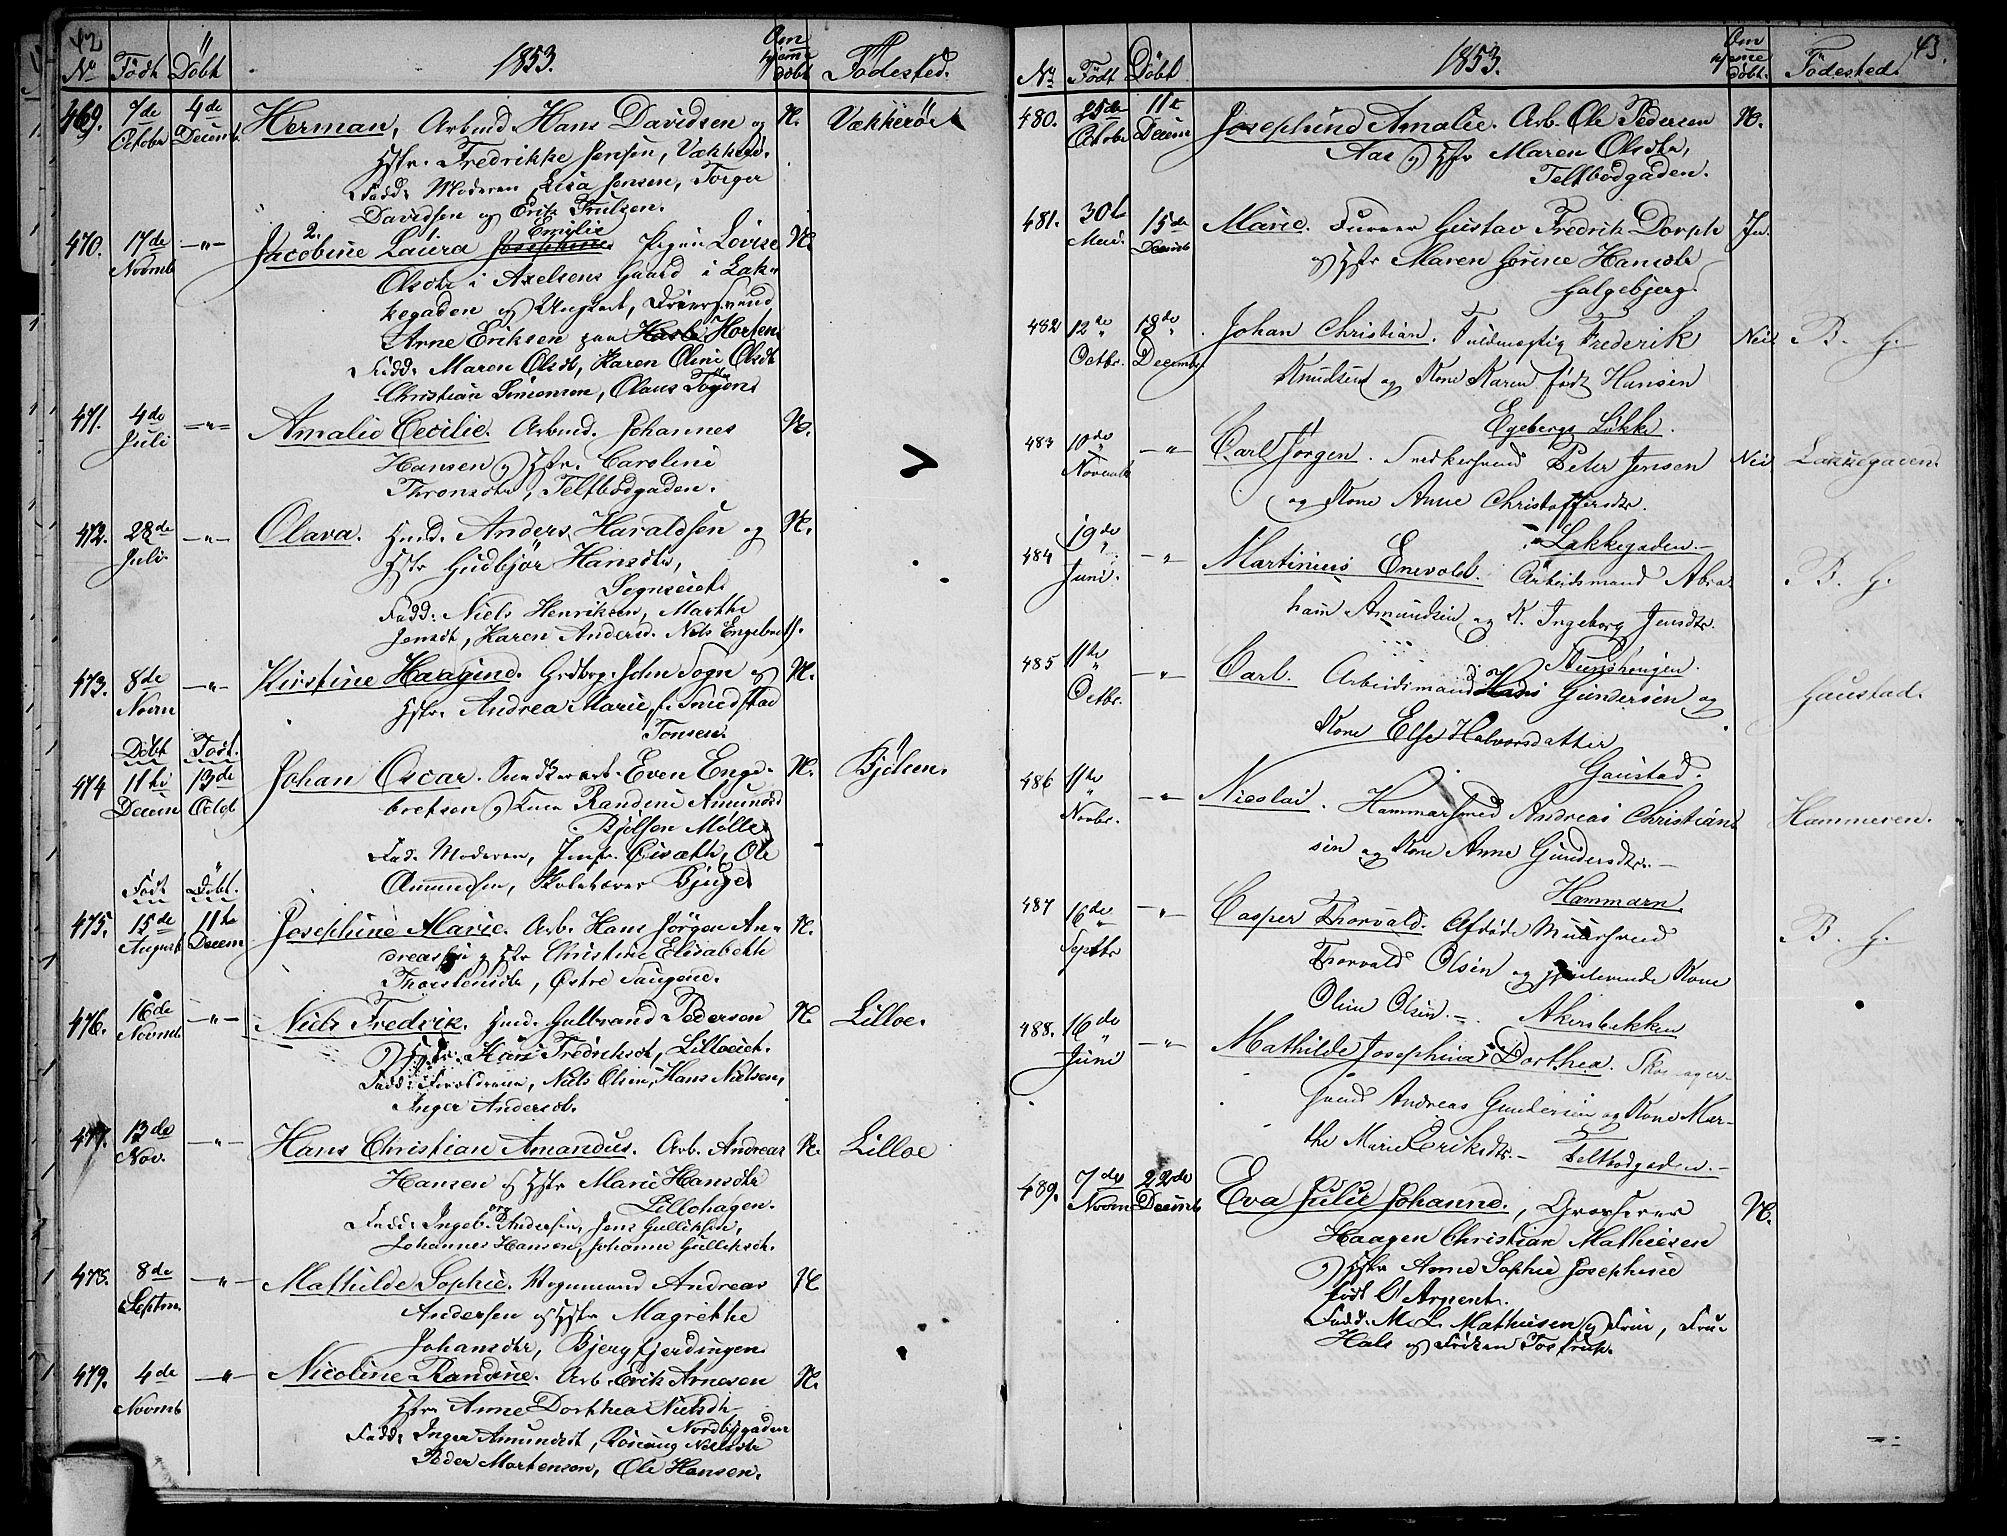 42
No Födt Döbt 1853. Om hjemme döbt Födested.
469. 7de Octobr 4de Decemb. Herman, Arbmd Hans Davidsen og N. Vækkerö
Hstr. Fredrikke Jensen, Vækkerö.
Fadd: Moderen, Lisa Jensen, Torger
Davidsen og Erik Trulsen.
470. 17de Novmb —"— Jacobine Laura Josephine Emilie Pigen Lovise N.
Olsdtr i Axelsens Gaard i Lak-
kegaden og Ungkarl,
Arne Eriksen paa Hasle Horten
Fadd: Maren Olsdt, Karen Oline Olsdt
Christian Simensen, Olaus
471. 4de Juli —"— Amalie Cecilie. Arbmd. Johannes N.
Hansen og Hstr. Caroline
Thronsdtr, Teltbodgaden.
472. 28de Juli —"— Olava. Hmd. Anders Haraldsen og N.
Hstr Gudbjör Hansdtr,
Sognseiet
Fadd: Niels Henriksen, Marthe
Jensdt, Karen Andersd. Nils Engebrets.
473. 8de Novm —"— Kirstine Haagine. Grdbrg. John Sogn og N.
Hstr. Andrea Marie, f. Smedstad
Tonsen.
Döbt Födt.
474 11te Decem 13de Octob Johan Oscar. Snedkerarb. Even Enge- N. Bjölsen.
bretsen og Kone Randine Amundsd
Bjölsen Mölle
Fad. Moderen, Jomfr. Sivæth, Ole
Amundsen, Skolelærer Bjuge
Födt Döbt.
475. 15de August 11te Decem Josephine Marie. Arb. Hans Jörgen An- N.
dreassen og Hstr Christine Elisabeth
Thorstensdtr, Östre Saugene.
476. 16de Novmb —"— Niels Fredrik. Hmd. Gulbrand Pedersen N. Lilloe.
og Hstr. Kari Fredriksdt, Lilloeiet.
Fadd: Forældrene, Niels Olsen, Hans Nielsen,
Inger Andersdt.
477. 13de Nov. —"— Hans Christian Amandus. Arb. Andreas N. Lilloe
Hansen og Hstr Marie Hansdtr
Lillohagen.
Fadd: Ingeborg Andersen, Jens Gulliksen,
Johannes Hansen, Johanne Gulliksdt.
478. 8de Septm. —"— Mathilde Sophie. Vognmand Andreas N.
Andersen og Hstr Magrethe
Johansdtr, Bjergfjerdingen
479. 4de Novmb —"— Nicoline Randine. Arb. Erik Arnesen N.
Hstr Anne Dorthea Nielsdtr
Nordbygaden
Fadd: Inger Amundsdt, Rönnaug Nielsdtr
Peder Mortensen, Ole Hansen.
43.
No Födt Döbt 1853. Om hjemme döbt. Födested.
480. 25de Octobr 11te Decem Josephine Amalie. Arb. Ole Pedersen N.
Aas og Hstr Maren Olsdtr,
Teltbodgaden.
481. 30te 15de Decemb Marie. Gustav Fredrik Dorph Ja.
og Hstr Maren Hansdtr
Galgebjerg.
482 12te Octbr. 18de Decembr Johan Christian. Fuldmægtig Frederik Nei B. H.
Knudsen og Kone Karen födt Hansen
Egebergs Lökke.
483 10de Novemb —"— Carl Jörgen. Snedkersvend Peter Jensen Nei Lakkegaden.
og Kone Anne Christoffersdtr.
Lakkegaden.—
484 19de Juni. —"— Martinius Enevold. Arbeidsmand Abra- B. H.
ham Amundsen og K. Ingeborg Jensdtr.
485 11te Octbr. —"— Carl. Arbeidsmand Gundersen og Gaustad.
Kone Else Halvorsdatter
Gaustad.
486 11te Novbr. —"— Nicolai. Hammersmed Andreas Christian- Hammeren.
sen og Kone Anne Gundersdtr.—
Hammern
487 16de Septbr —"— Casper Thorvald. Afdöde Muursvend B. H.
Thorvald Olsen og gjenlevende Kone
Oline Olsen.—. Akersbekken
488. 16de Juni —"— Mathilde Josephine Dorthea. Skomager-
svend Andreas Gundersen og Kone Mar-
the Marie Eriksdtr.— Teltbodgaden.—
489. 7de Novm 22de Decemb Eva Julie Johanne., Grosserer N.
Haagen Christian Mathiesen
og Hstr Anne Sophie Josephine
födt D'Arpent.
Fadd: M. L. Mathiesen og Frue, Fru
Hals og Fröken Tostrup.